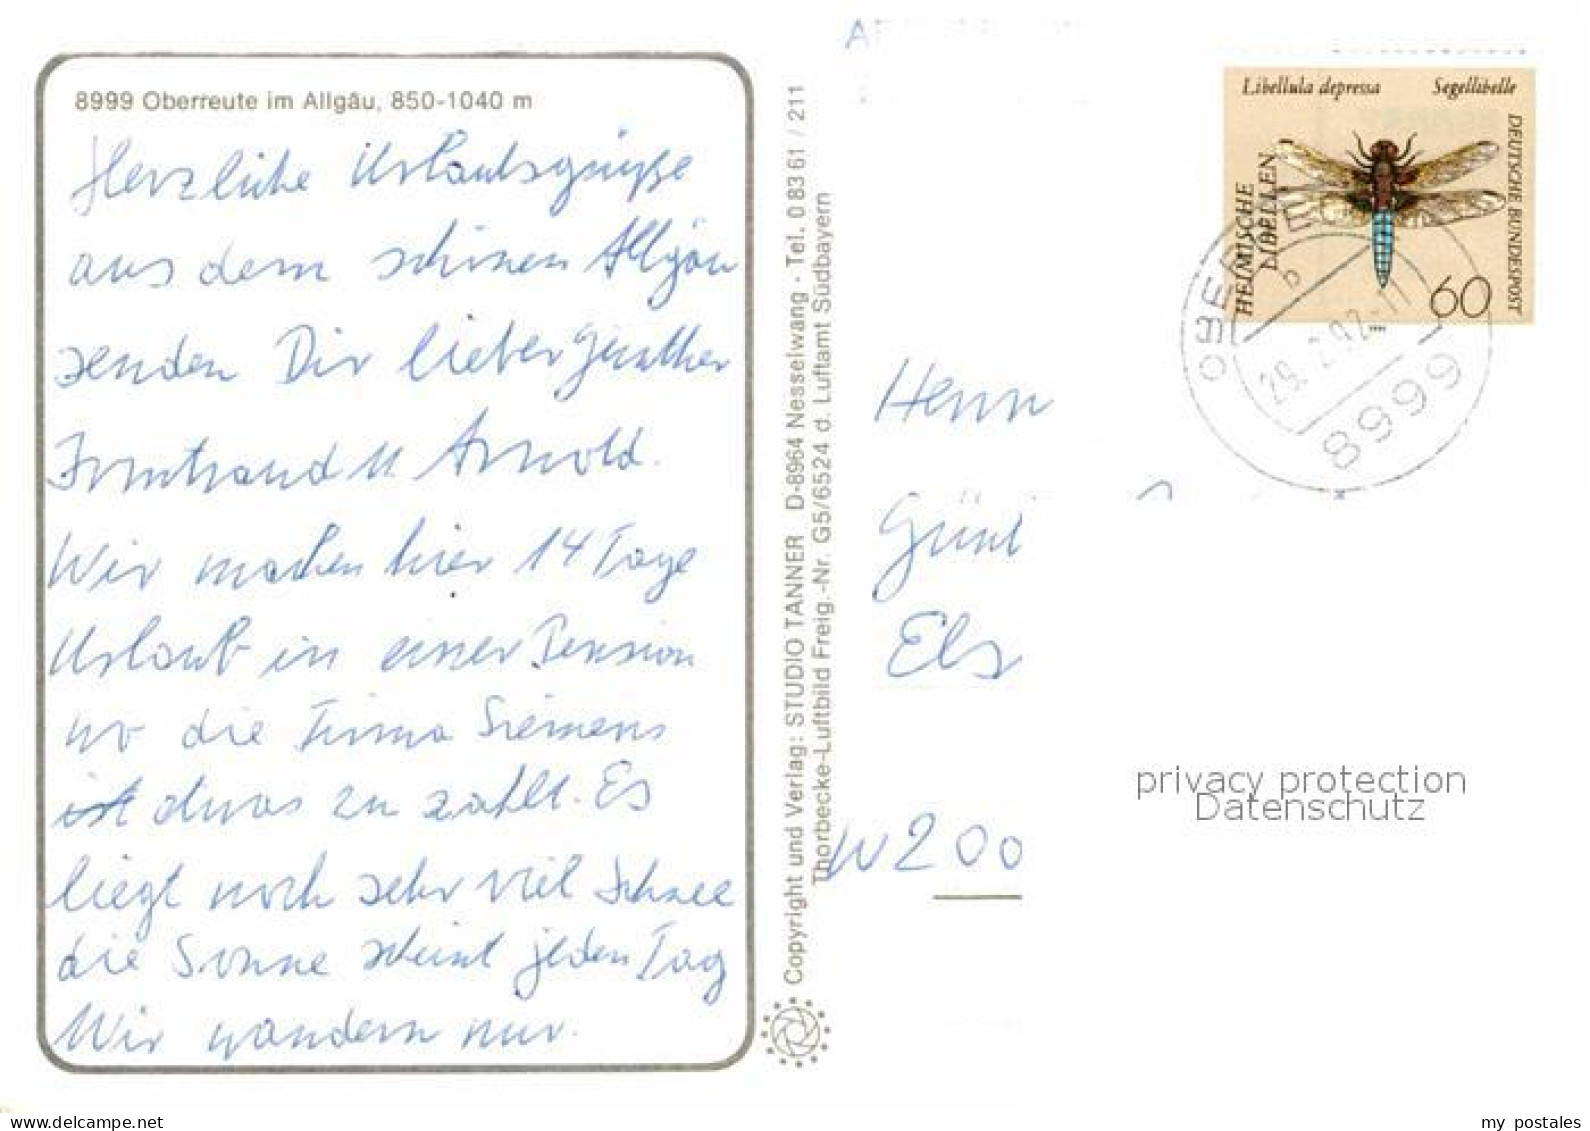 8999 Oberreute im Allgäu, 850-1040 m
Herzliche Urlaubsgrüße
aus dem schönen Allgäu
senden Dir lieber Günther
Irmtraud u. Arnold.
Wir machen hier 14 Tage
Urlaub in einer Pension
wo die Firma Siemens
etwas zu zahlt. Es
liegt noch sehr viel Schnee
die Sonne scheint jeden Tag
Wir wandern nur.
Copyright und Verlag: STUDIO TANNER D-8964 Nesselwang · Tel. 0 83 61 / 211
Thorbecke-Luftbild Freig.-Nr. G5/6524 d. Luftamt Südbayern
Libellula depressa Segellibelle
HEIMISCHE
LIBELLEN
DEUTSCHE BUNDESPOST
60
29.-2.92-11
8999
Herrn
Günt
Els
W 200
privacy protection
Datenschutz
my postales